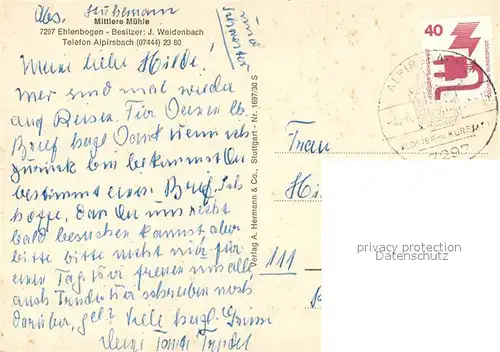 Abs. Stuhemann
Mittlere Mühle
7297 Ehlenbogen - Besitzer: J. Weidenbach
Telefon Alpirsbach (07444) 23 80
Meine liebe Hilde!
wir sind mal wieder
auf Reisen. Für Deinen lb.
Brief hzgl. Dank wenn ich
zurück bin bekommst Du
bestimmt einen Brief. Ich
hoffe, dass Du uns recht
bald besuchen kannst, aber
bitte bitte nicht nur für
einen Tag. Wir freuen uns alle,
auch Trude. Wir schreiben noch
darüber, gel? Viele herzl. Grüsse
Deine Tante
Verlag A. Hermann & Co., Stuttgart - Nr. 1697/30 S
40
ALPIRSBACH
KLOSTER- U. KURSTADT
7297
Frau
111
privacy protection
Datenschutz